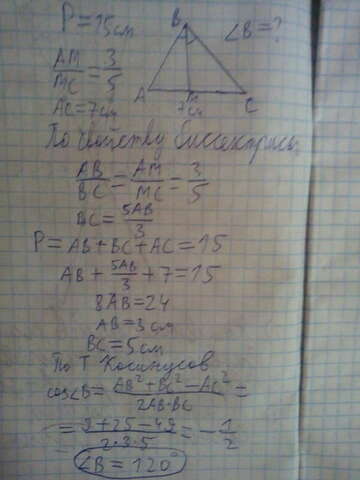 P = 15 см
∠B = ?
AM/MC = 3/5
AC = 7 см
B
A
M
7 см
C
По свойству биссектрисы
AB/BC = AM/MC = 3/5
BC = 5AB/3
P = AB + BC + AC = 15
AB + 5AB/3 + 7 = 15
8AB = 24
AB = 3 см
BC = 5 см
По Т Косинусов
cos∠B = AB² + BC² − AC² / 2AB·BC =
= 9 + 25 − 49 / 2·3·5 = − 1/2
∠B = 120°